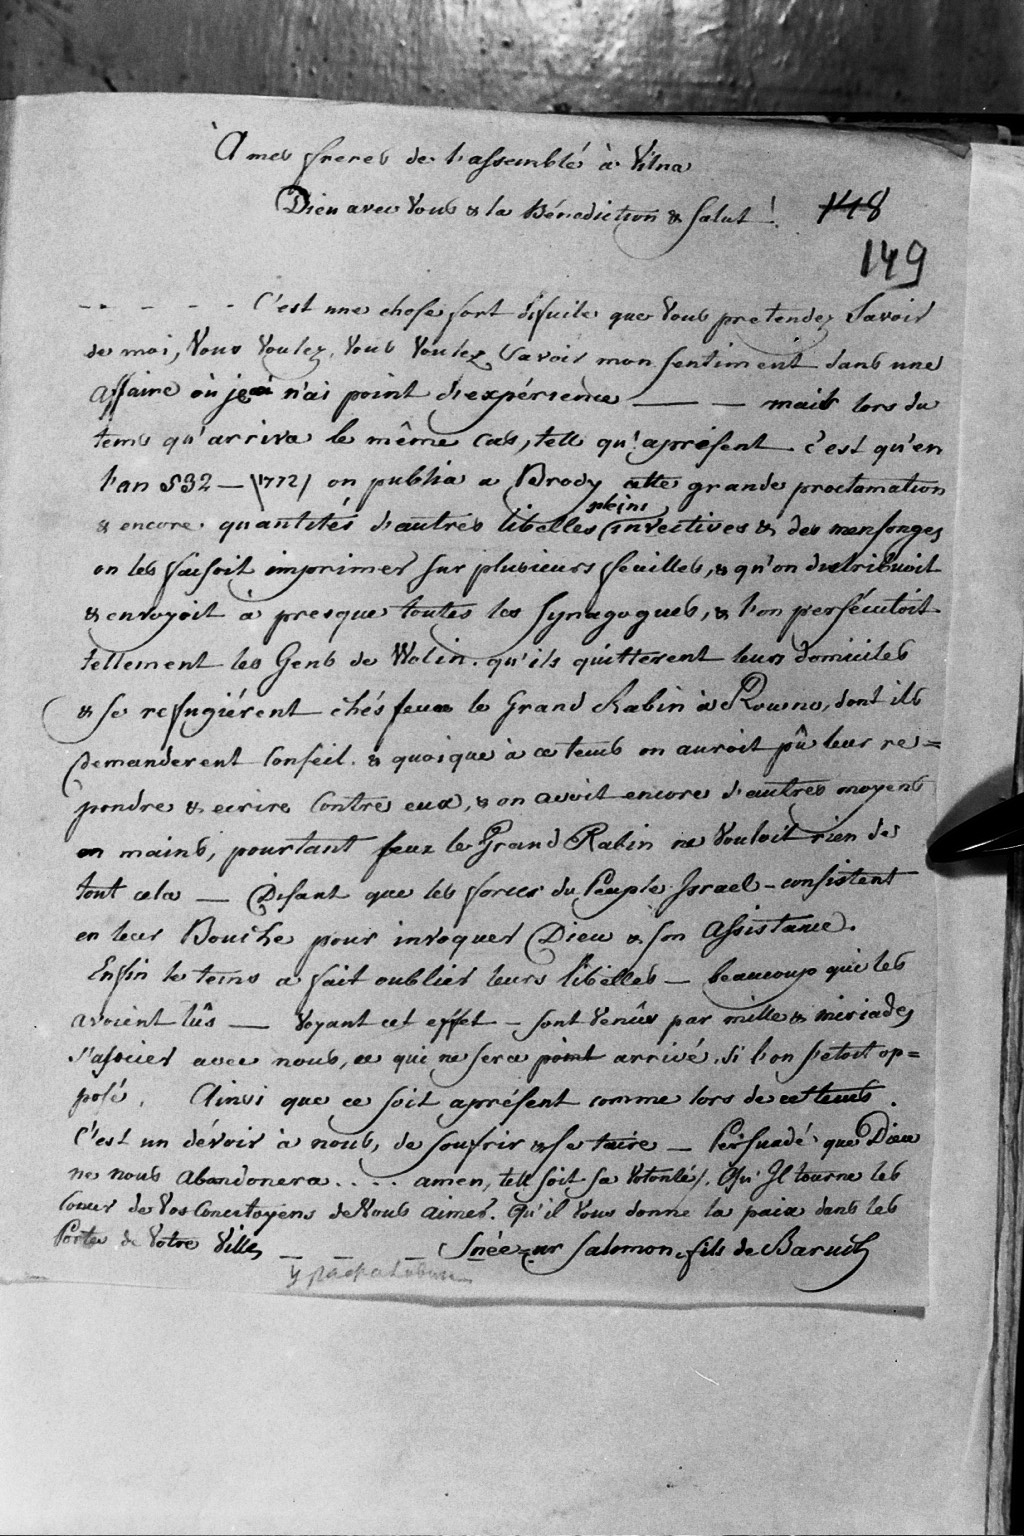 À mes freres de l'assemblé à Vilna
Dieu avec Vous & la Bénediction & Salut! 148
149
- - - - - C'est une chose fort dificile que Vous pretendez Savoir
de moi, Vous Voulez, Vous Voulez Savoir mon sentiment dans une
affaire où je n'ai point d'expérience — — mais lors du
tems qu'arriva le même cas, tell qu'aprésent c'est qu'en
l'an 532 — (1772) on publia a Brody cette grande proclamation
pleins
& encore quantités d'autres libelles invectives & des mensonges
on les faisoit imprimer sur plusieurs feuilles, & qu'on distribuoit
& envoyoit à presque toutes les Synagogues, & l'on persécutoit
tellement les Gens de Wolin qu'ils quitterent leurs domiciles
& se refugiérent chés feux le Grand Rabin à Rowno, dont ils
demanderent Conseil. & quoique à ce tems on auroit pû leur re=
pondre & ecrire Contre eux, & on avoit encore d'autres moyens
en mains, pourtant feux le Grand Rabin ne Vouloit rien de
tout cela — Disant que les forces du Peuple Israel - consistent
en leur Bouche pour invoquer Dieu & son Assistance.
Enfin le tems a fait oublier leurs libelles — beaucoup qui les
avoient lûs — Voyant cet effet — sont Venûs par mille & miriades
s'associer avec nous, ce qui ne sera point arrivé, si l'on s'etoit op=
posé. Ainsi que ce soit aprésent comme lors de cet tems.
C'est un dévoir à nous, de soufrir & se taire — Persuadé que Dieu
ne nous abandonera .... amen, tell soit sa Volonté. Qu'Il tourne les
Coeur de Vos Concitoyens de Vous aimer. Qu'il Vous donne la paix dans les
Portes de Votre Ville — — — Salomon fils de Baruch